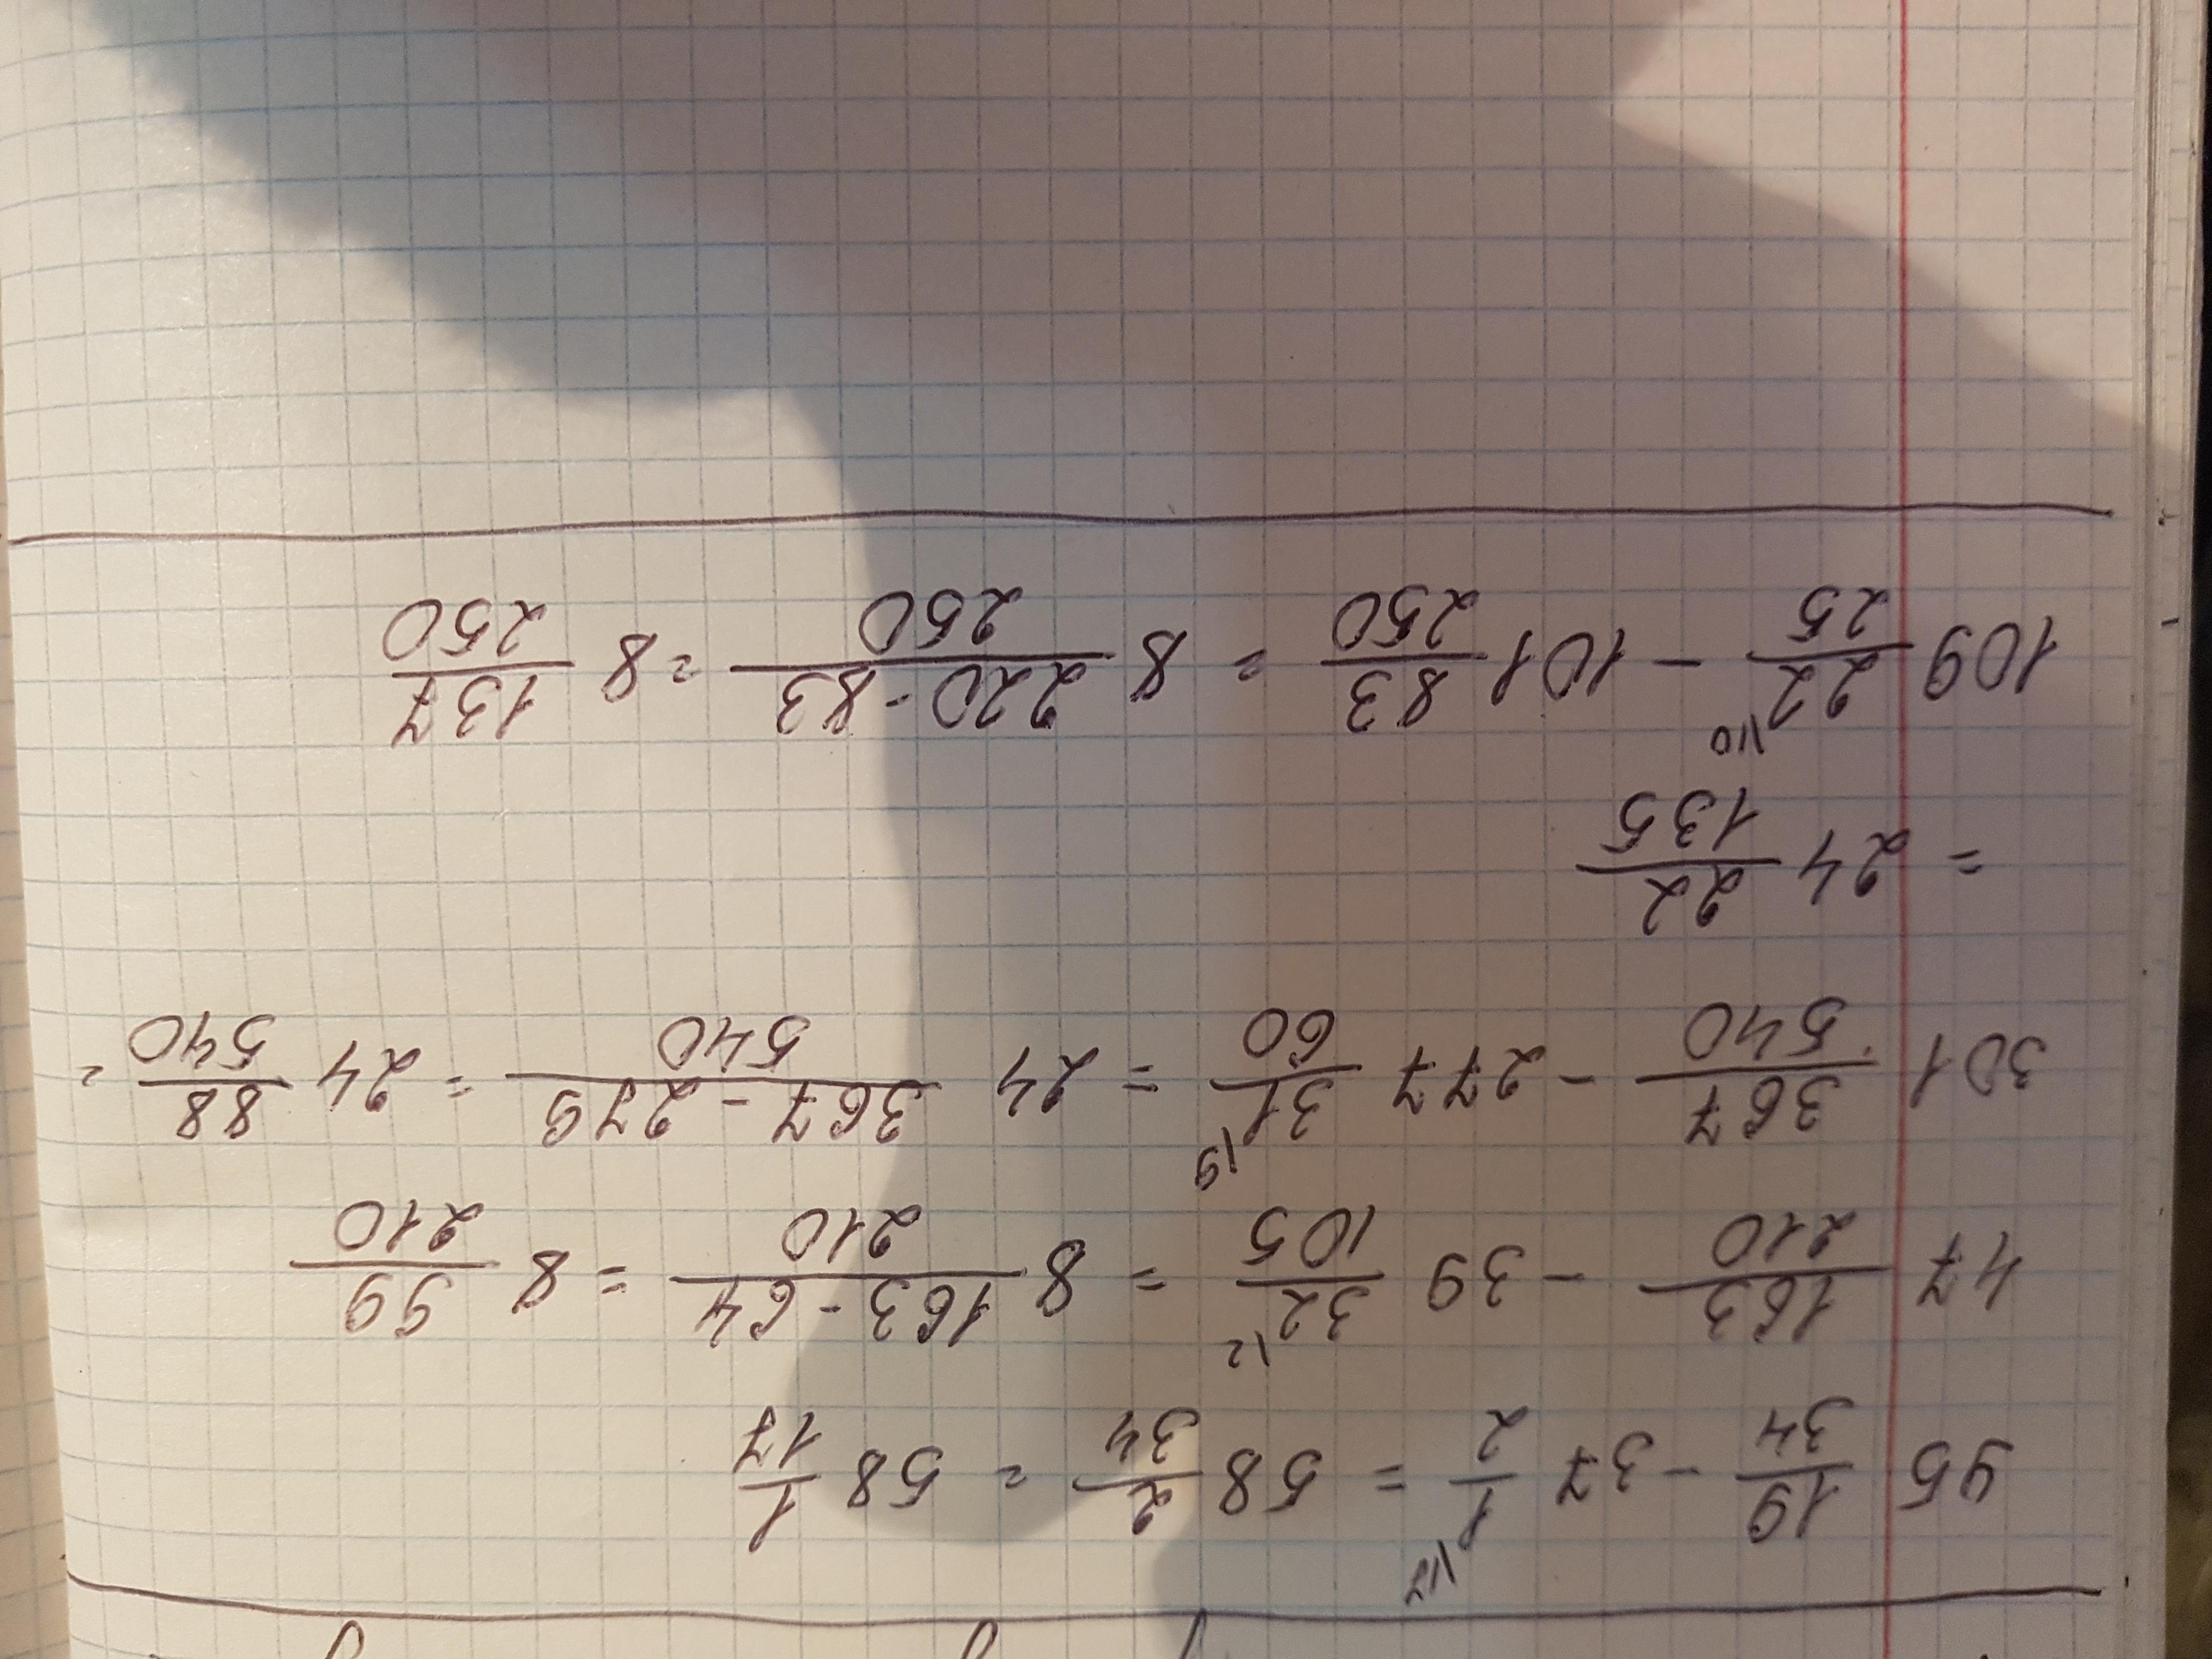 95 19/34 - 37 1/2 \17 = 58 2/34 = 58 1/17
47 163/210 - 39 32/105 \2 = 8 163-64/210 = 8 99/210
301 367/540 - 277 31/60 \9 = 24 367-279/540 = 24 88/540 =
= 24 22/135
109 22/25 \10 - 101 83/250 = 8 220-83/250 = 8 137/250